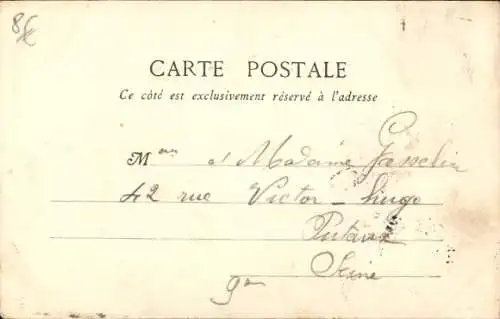 CARTE POSTALE
Ce côté est exclusivement réservé à l'adresse
M et Madame Gosselin
42 rue Victor-Hugo
Puteaux
Seine